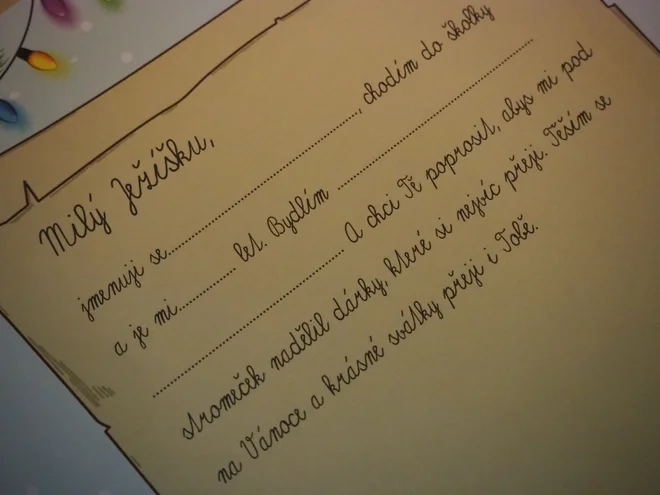 Milý Ježíšku,
jmenuji se.............................., chodím do školky
a je mi.......... let. Bydlím ..............................
.............................. A chci Tě poprosil, abys mi pod
stromeček nadělil dárky, které si nejvíc přeji. Těším se
na Vánoce a krásné svátky přeji i Tobě.